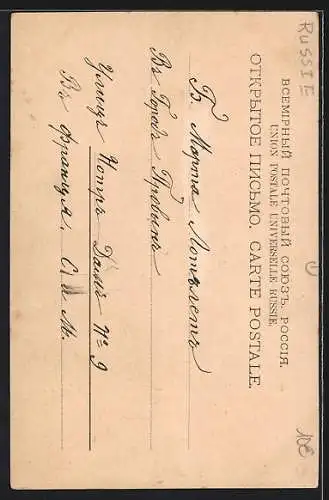 RUSSIE
ВСЕМІРНЫЙ ПОЧТОВЫЙ СОЮЗЪ. РОССІЯ.
UNION POSTALE UNIVERSELLE. RUSSIE.
ОТКРЫТОЕ ПИСЬМО. CARTE POSTALE.
Б. Марта
Въ Городъ
Улица Нотръ Дамъ № 9
Въ Франция. С. и М.
10€